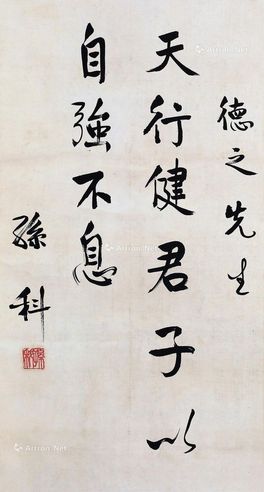 德之先生
天行健君子以
自強不息
孫科
Artron.Net
Artron.Net
Artron.Net